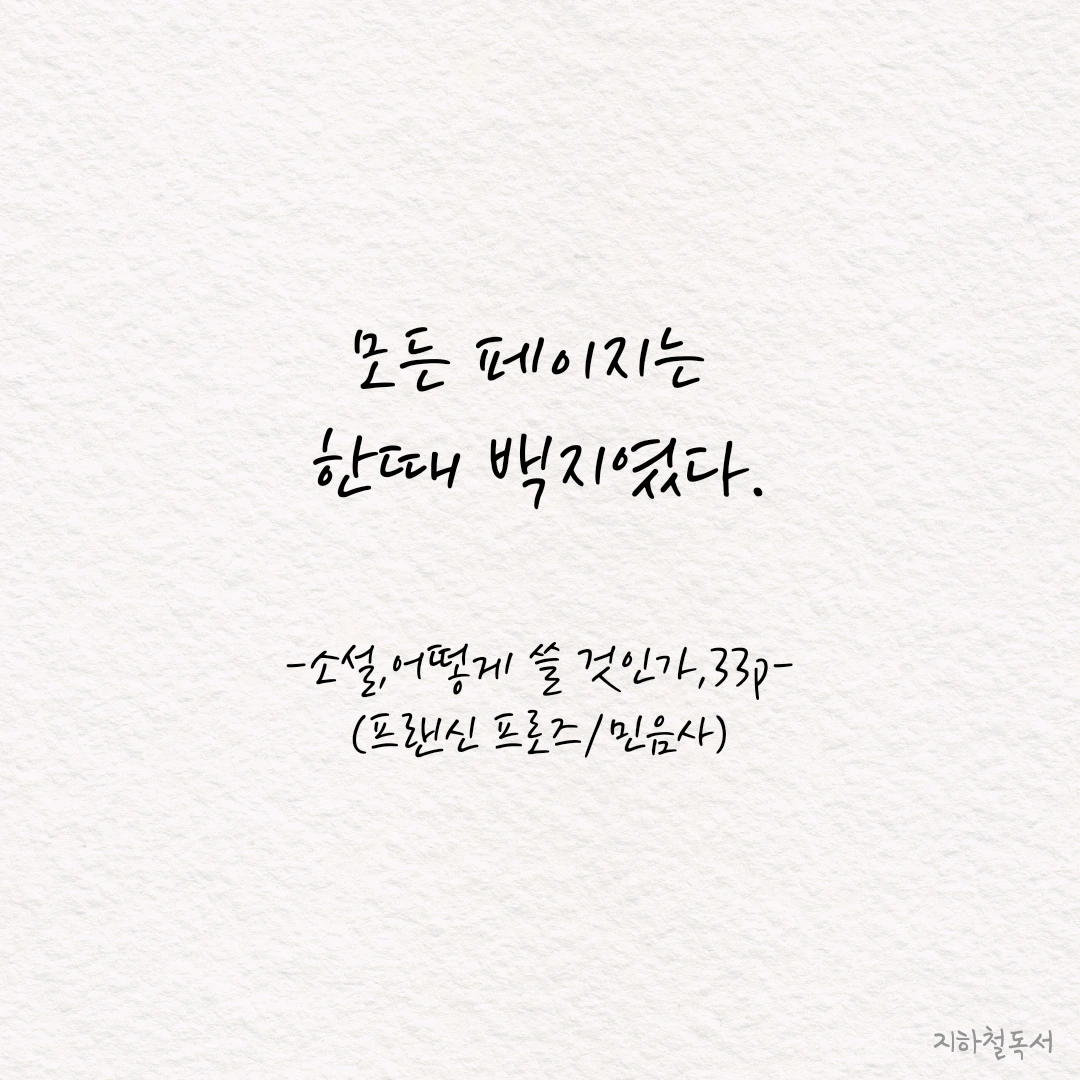 모든 페이지는
한때 백지였다.
-소설,어떻게 쓸 것인가,33p-
(프랜신 프로즈/민음사)
지하철독서